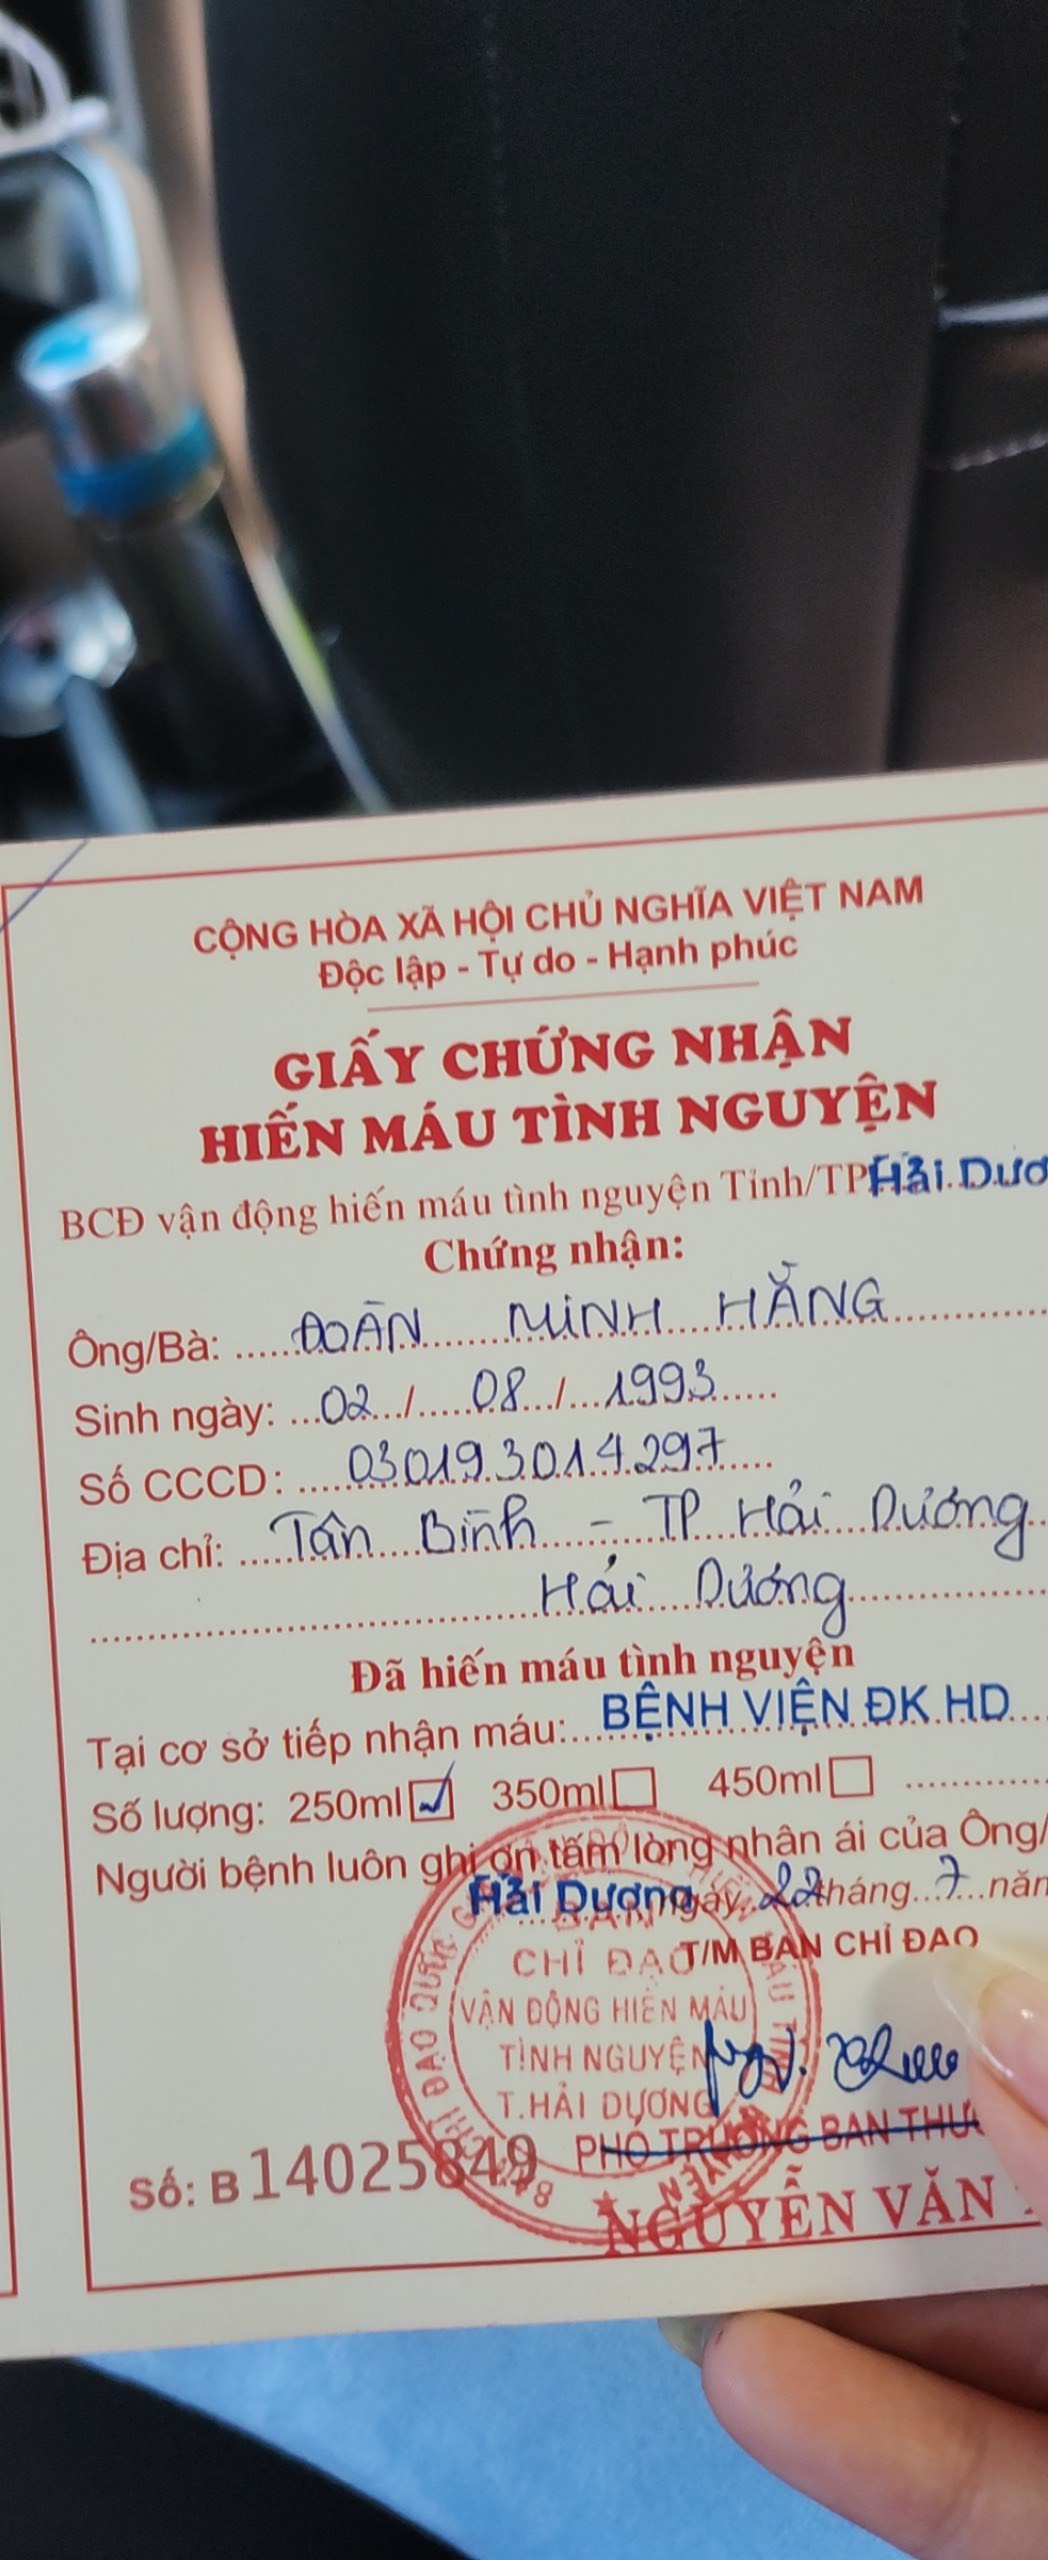 CỘNG HÒA XÃ HỘI CHỦ NGHĨA VIỆT NAM
Độc lập - Tự do - Hạnh phúc
GIẤY CHỨNG NHẬN
HIẾN MÁU TÌNH NGUYỆN
BCĐ vận động hiến máu tình nguyện Tỉnh/TP Hải Dươ
Chứng nhận:
Ông/Bà: ĐOÀN MINH HẰNG
Sinh ngày: 02 / 08 / 1993
Số CCCD: 030193014297
Địa chỉ: Tân Bình - TP Hải Dương
Hải Dương
Đã hiến máu tình nguyện
Tại cơ sở tiếp nhận máu: BỆNH VIỆN ĐK HD
Số lượng: 250ml 350ml 450ml
Người bệnh luôn ghi ơn tấm lòng nhân ái của Ông/
Hải Dương ngày 22 tháng 7 năm
T/M BAN CHỈ ĐẠO
BAN
CHỈ ĐẠO
VẬN ĐỘNG HIẾN MÁU
TÌNH NGUYỆN
T.HẢI DƯƠNG
PHÓ TRƯỞNG BAN THƯ
Số: B 14025849
NGUYỄN VĂN